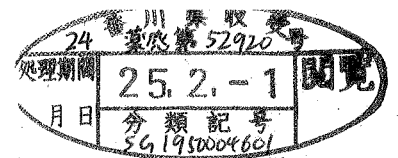 香川県収受
24 基発第52920号
処理期間
25.2.-1
閲覧
月日
分類記号
SG1950004601